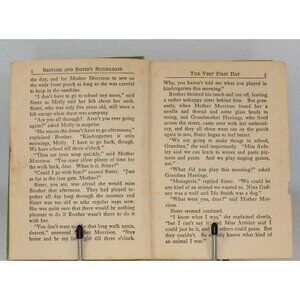 4 BROTHER AND SISTER'S SCHOOLDAYS
the day, and for Mother Morrison to sew on
the wide front porch as long as she was careful
to keep in the sunshine.
"I don't have to go to school any more," said
Sister as Molly tied her bib about her neck.
Sister, who was only five years old, still wore a
bib except when there was company.
"Are you all through? Aren't you ever going
again?" asked Molly in surprise.
"She means she doesn't have to go afternoons,"
explained Brother. "Kindergarten is only
mornings, Molly. I have to go back, though.
We have school till three o'clock."
"Then eat your soup quickly," said Mother
Morrison. "You must allow plenty of time for
the walk back, dear. What is it, Sister?"
"Could I go with him?" coaxed Sister. "Just
as far as the iron gate, Mother?"
Sister, you see, was afraid she would miss
Brother that afternoon. They had played to-
gether all day long through the summer and
Sister was too old to take regular naps now.
She was quite sure that there would be nothing
pleasant to do if Brother wasn't there to do it
with her.
"You don't want to take that long walk again,
dearest," answered Mother Morrison. "Stay
home and be my little girl till three o'clock.
THE VERY FIRST DAY 5
Why, you haven't told me what you played in
kindergarten this morning."
Brother finished his lunch and ran off, leaving
a rather unhappy sister behind him. But pres-
ently, when Mother Morrison found her a
needle and thread and some glass beads to
string, and Grandmother Hastings, who lived
across the street, came over with her embroidery
to sit on the porch and sew, Sister began to feel
better.
"We are going to make things in school,
Grandma," she said importantly. "Miss Ardsley
said we were to learn to weave with papers
and paint. And we play singing games,
too."
"What did you play this morning?" asked
Grandma Hastings.
"Menagerie," replied Sister. "We could be
any kind of an animal we wanted to. Nina Caf-
frey was a wolf and Ida Smith was a dog."
"What were you, dear?" said Mother Mor-
rison.
Sister seemed confused.
"I know what I was," she explained slowly,
"but I can't say it. Miss Ardsley said I
could just be it, and the others could guess. But
they couldn't. Nobody knows what kind of
an animal I was."